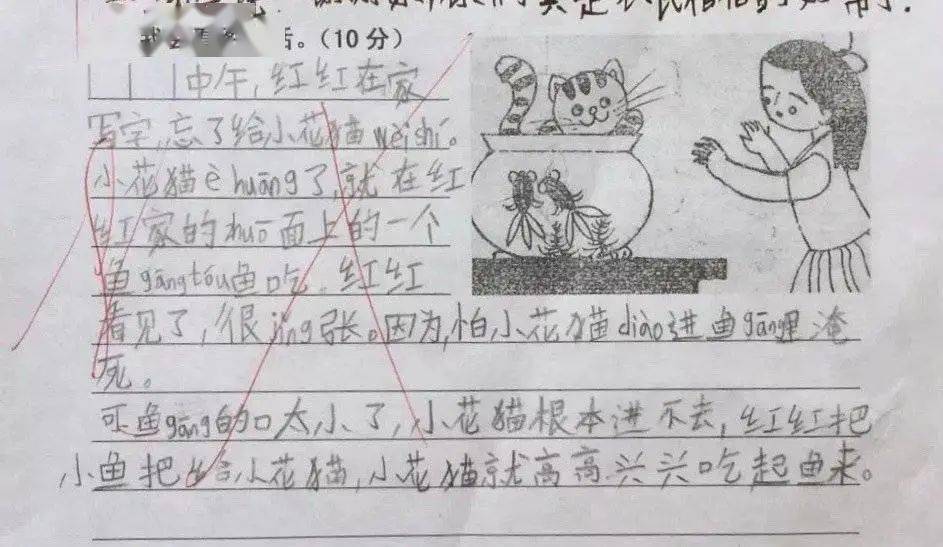 话。(10分)
中午,红红在家
写字,忘了给小花猫wèishí。
小花猫è huāng了,就在红
红家的zhuō面上的一个
鱼gāngtōu鱼吃。红红
看见了,很jǐng张。因为,怕小花猫diào进鱼gāng里淹
死。
可鱼gāng的口太小了,小花猫根本进不去,红红把
小鱼把给小花猫,小花猫就高高兴兴吃起鱼来。